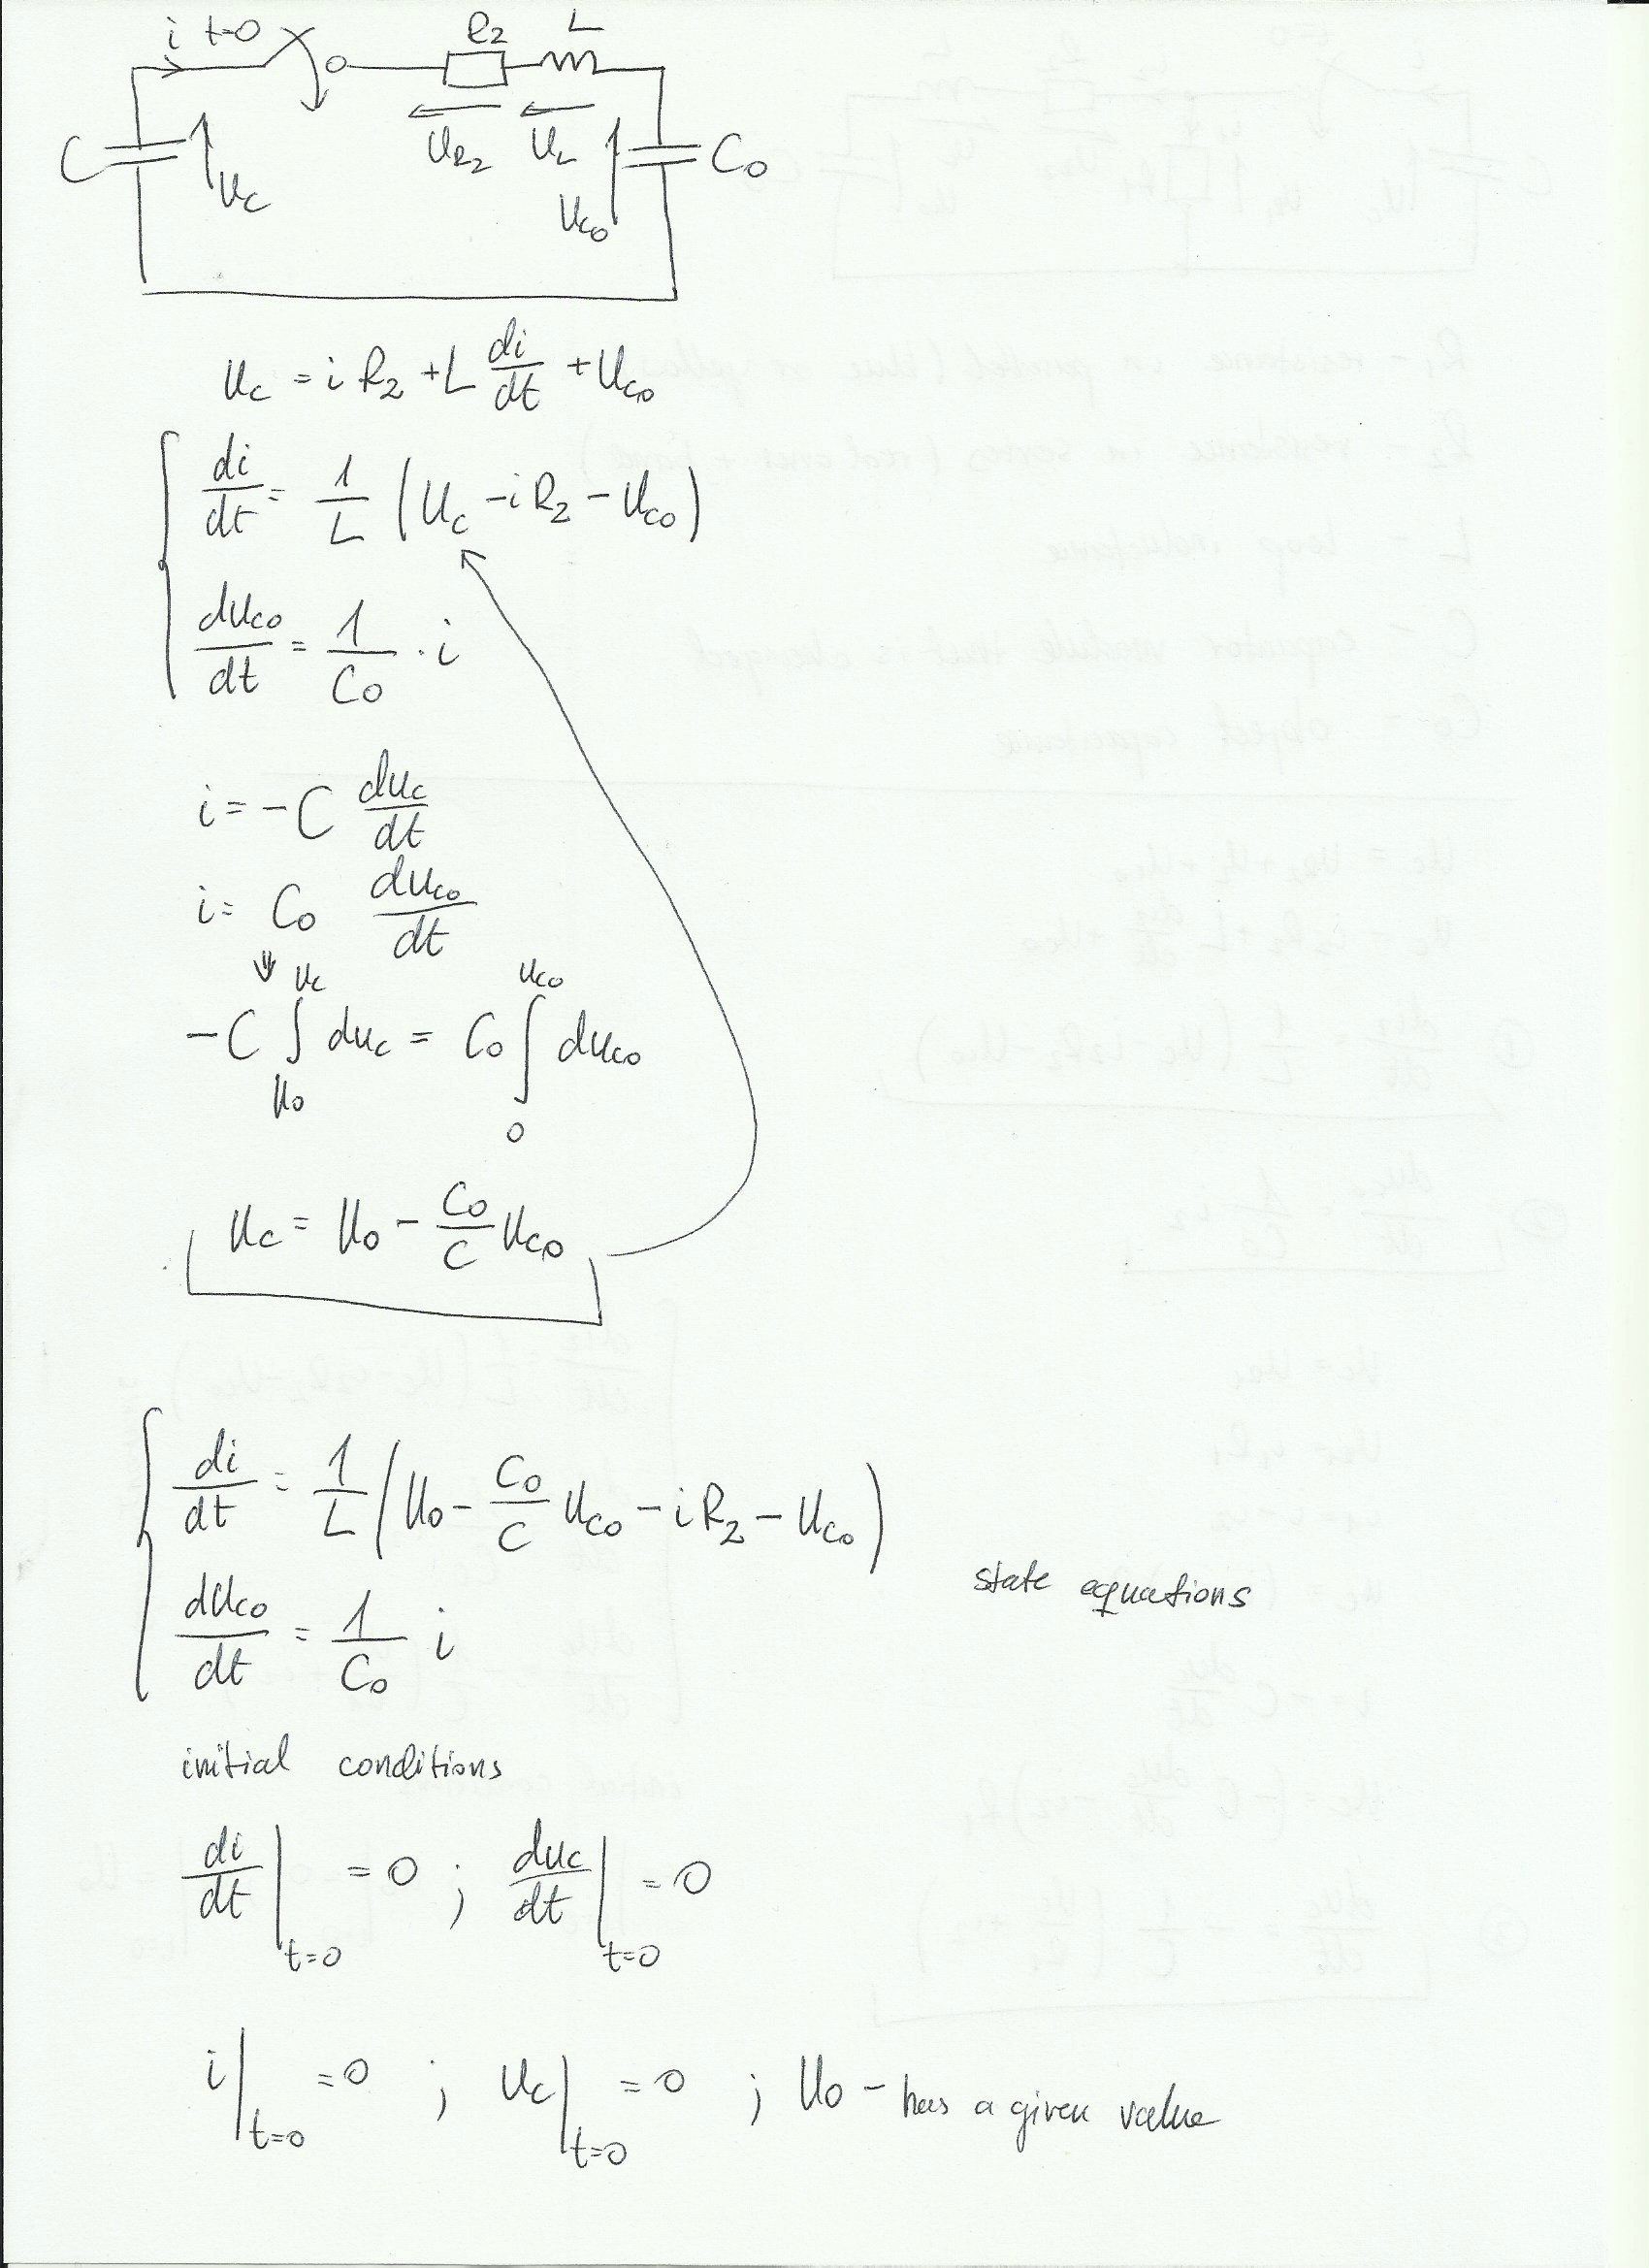 i t=0 R2 L
C uc uR2 uL uco Co
uc = i R2 + L di/dt + uco
di/dt = 1/L (uc - i R2 - uco)
duco/dt = 1/Co · i
i = -C duc/dt
i = Co duco/dt
⇓
-C ∫_{u0}^{uc} duc = Co ∫_{0}^{uco} duco
uc = u0 - Co/C uco
di/dt = 1/L (u0 - Co/C uco - i R2 - uco)
state equations
duco/dt = 1/Co i
initial conditions
di/dt |t=0 = 0 ; duc/dt |t=0 = 0
i |t=0 = 0 ; uc |t=0 = 0 ; u0 - has a given value